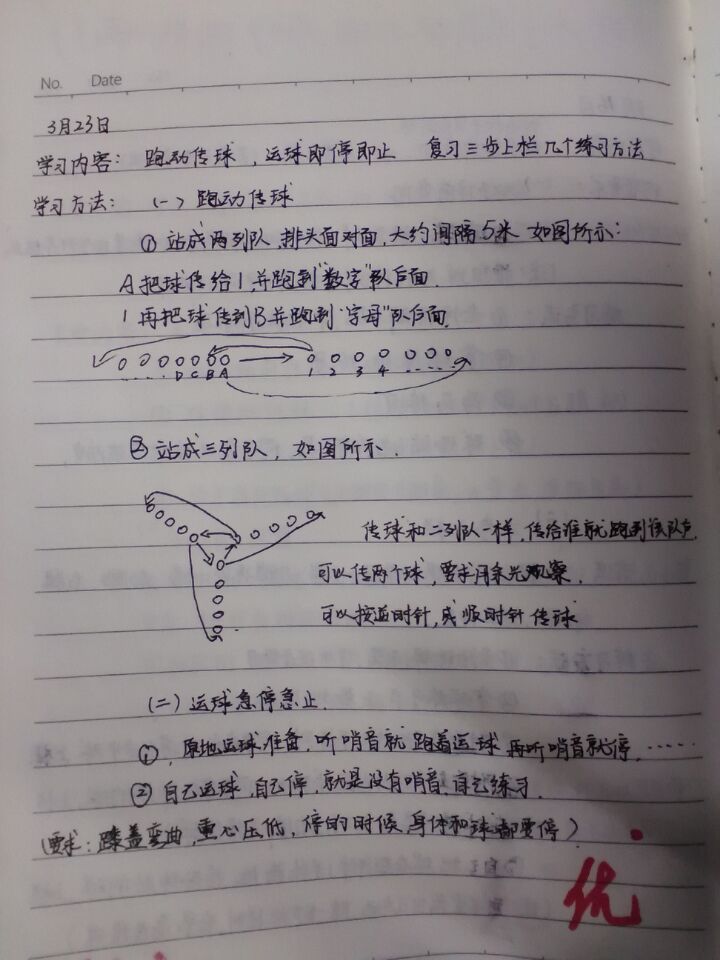 No. Date
3月23日
学习内容: 跑动传球, 运球即停即止 复习三步上栏几个练习方法
学习方法: (一) 跑动传球
① 站成两列队, 排头面对面, 大约间隔5米 如图所示:
A把球传给1并跑到"数字"队后面.
1再把球传到B并跑到"字母"队后面.
...... D C B A 1 2 3 4 ......
② 站成三列队, 如图所示.
传球和二列队一样, 传给谁就跑到该队后.
可以传两个球, 要求用余光观察.
可以按逆时针, 或顺时针传球
(二) 运球急停急止.
①, 原地运球准备, 听哨音就跑着运球 再听哨音就停. ......
② 自己运球, 自己停, 就是没有哨音, 自己练习.
(要求: 膝盖弯曲, 重心压低, 停的时候, 身体和球都要停)
优.